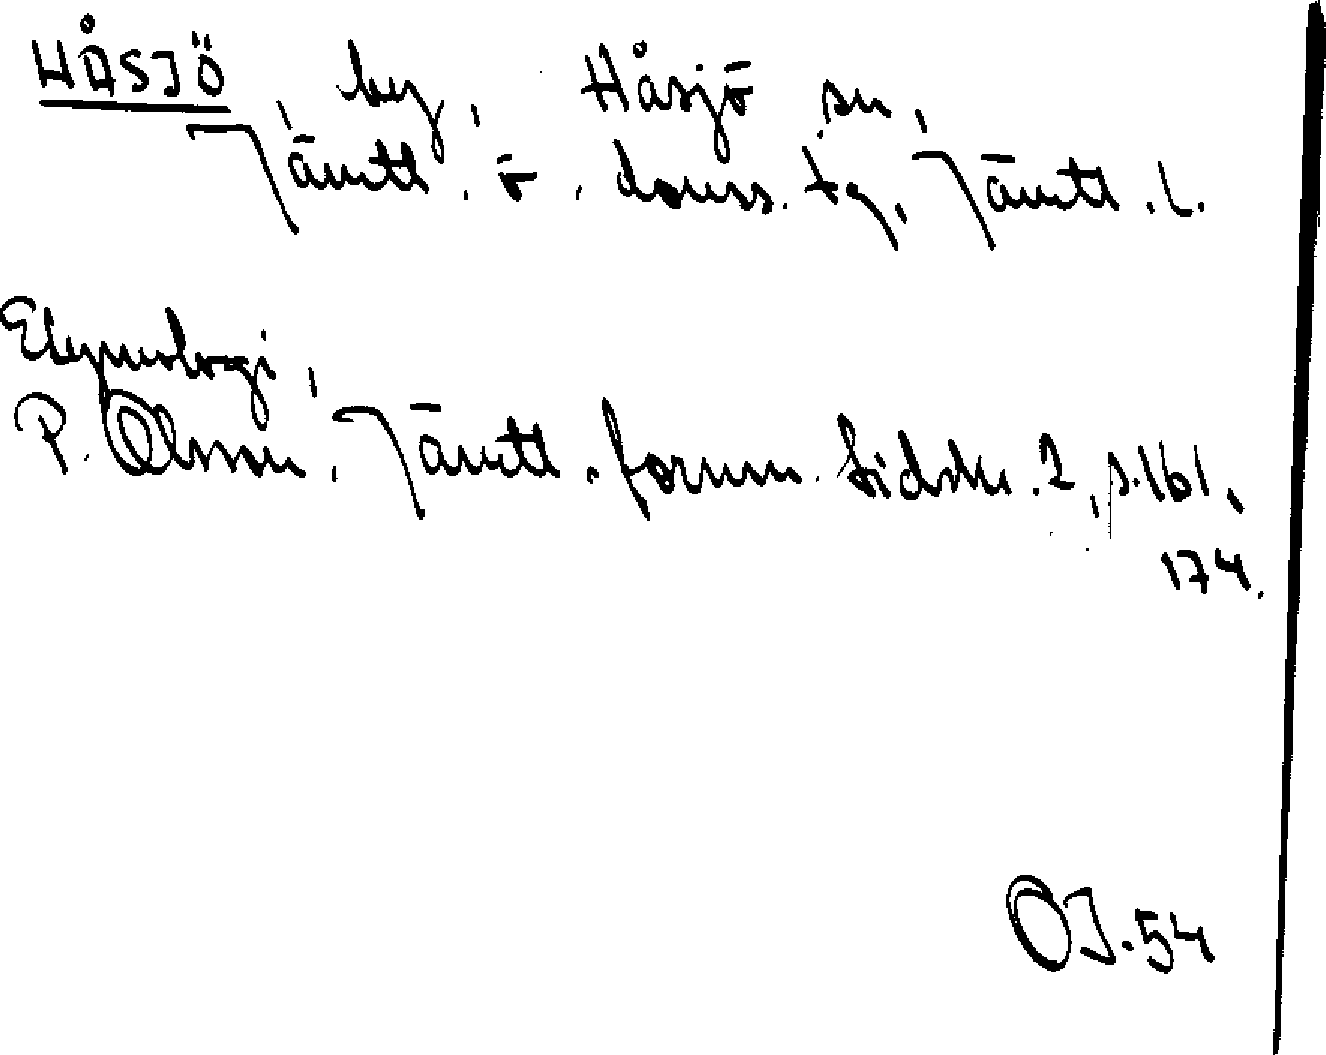 HÅSJÖ, by, Håsjö sn,
Jämtl. ö. doms. tg, Jämtl. l.
Etymologi,
P. Olsson, Jämtl. fornm. tidskr. 2, s. 161,
174.
OJ. 54